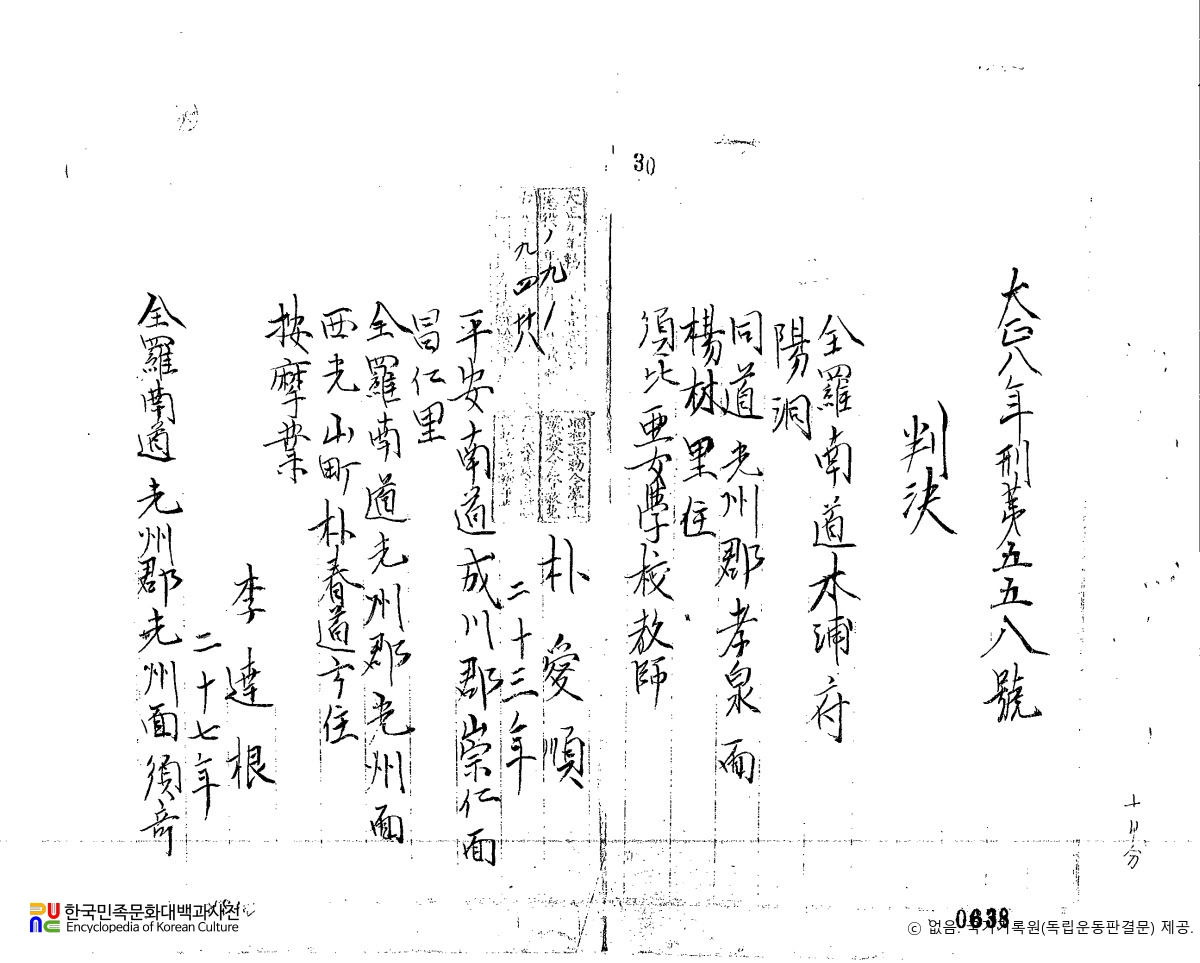 30
大正八年刑第五五八號
判決
全羅南道木浦府
陽洞
同道光州郡孝泉面
楊林里住
須比亜女學校教師
朴愛順
二十三年
平安南道成川郡崇仁面
昌仁里
全羅南道光州郡光州面
西光山町朴春道方住
按摩業
李達根
二十七年
全羅南道光州郡光州面須奇
十月分
九
0638
한국민족문화대백과사전
Encyclopedia of Korean Culture
ⓒ 없음. 국가기록원(독립운동판결문) 제공.